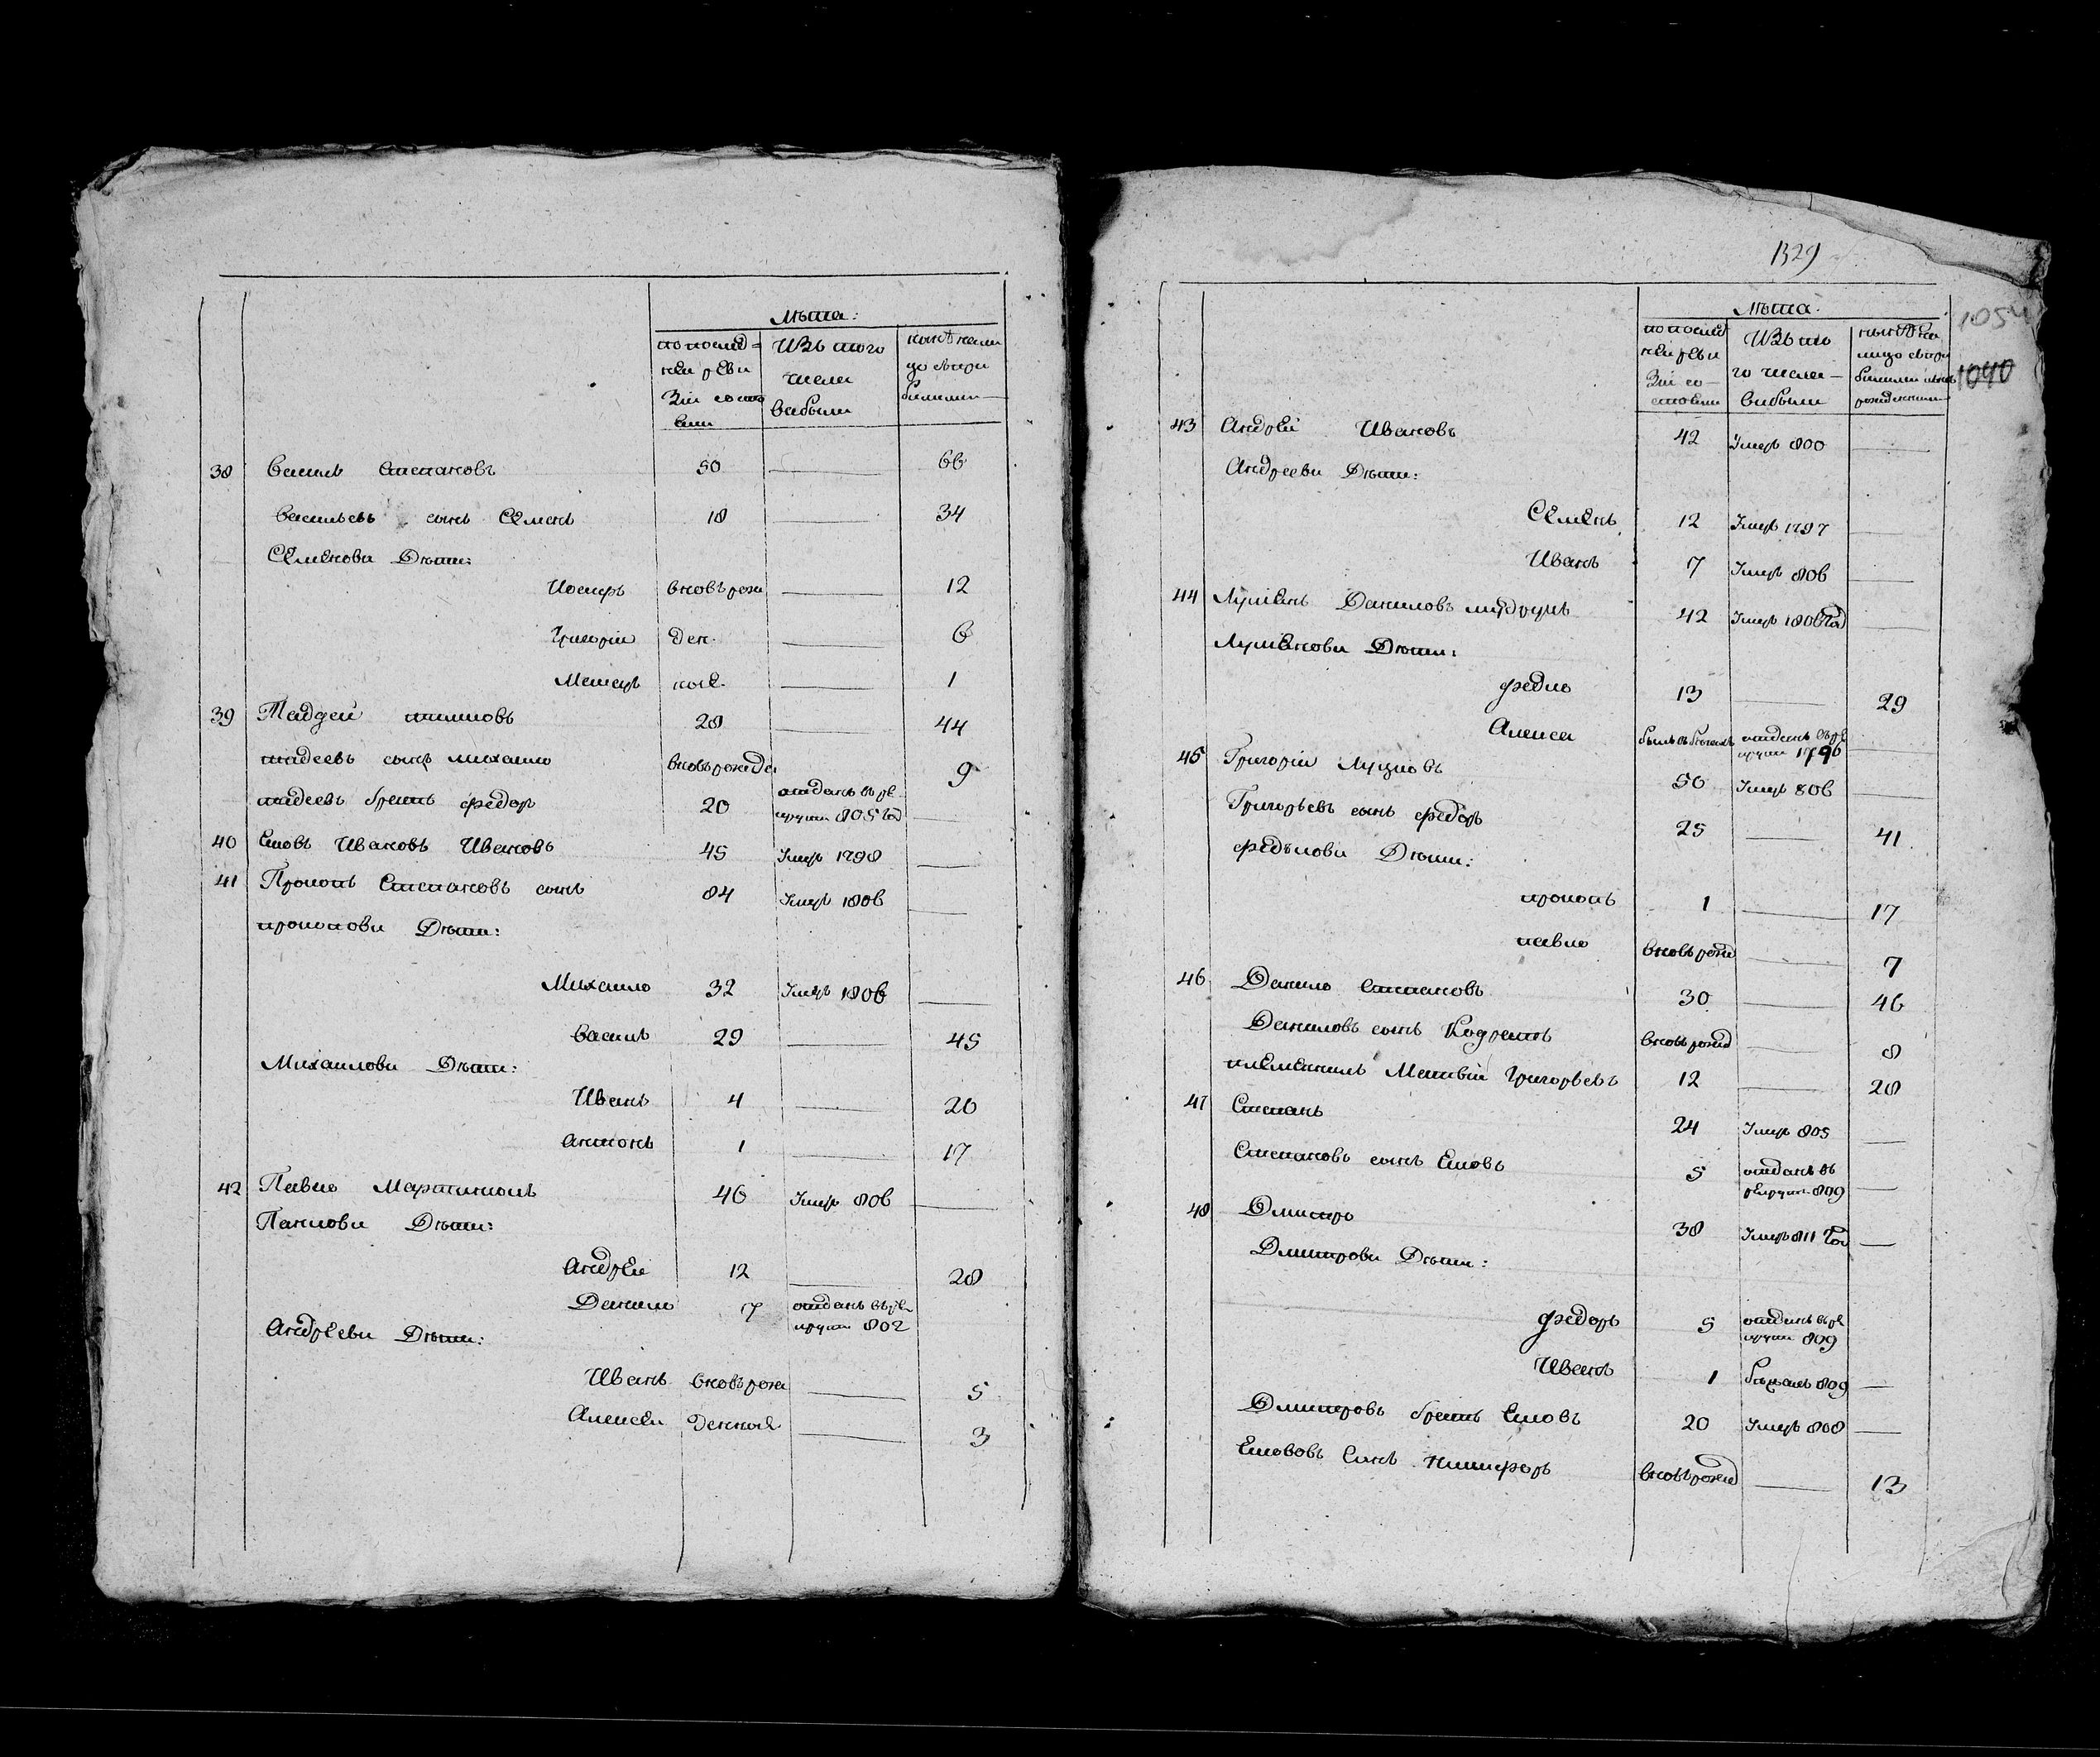 Лѣта:
по послѣд=
ней реви
зіи состо
яли
Изъ того
числа
выбыли
нынѣ нали
цо съвре
38 Василь Степановъ 50 — 66
Васильевъ сынъ Семенъ 18 — 34
Семенови Дѣти:
Іосифъ вновь рожд — 12
Григорій ден. — 6
ное — 1
39 Тадеи 28 — 44
тадеевъ сынъ михаило вновь рожде — 9
тадеевъ братъ федоръ 20 отданъ въ ре
круты 805 год —
40 Есиовъ Ивановъ Ивановъ 45 Умеръ 1798 —
41 Прокопъ Степановъ сынъ 84 Умеръ 1806 —
прокопови Дѣти:
Михаило 32 Умеръ 1806 —
Василь 29 — 45
Михаилови Дѣти:
Иванъ 4 — 20
антонъ 1 — 17
42 Павло 46 Умеръ 806 —
Павлови Дѣти:
Андрей 12 — 28
Данило 7 отданъ въ ре
круты 802
Андрееви Дѣти:
Иванъ вновь рож — 5
Алексей денное — 3
1329
1054
1040
Лѣта.
по послѣд
ней реви
зіи со—
стояли
Изъ то
го числа—
выбыли
нынѣ на
лицо
43 Андрей Ивановъ 42 Умеръ 800 —
Андрееви Дѣти:
Семенъ 12 Умеръ 1797 —
Иванъ 7 Умеръ 806 —
44 Лукіянъ Даниловъ 42 Умеръ 1806 год —
Лукіянови Дѣти:
федко 13 — 29
Алексей былъ въ бѣгахъ отданъ въ ре
круты 1796 —
45 Григорій 50 Умеръ 806 —
Григорьевъ сынъ федоръ 25 — 41
Дѣти:
прокопъ 1 — 17
павло вновь рожд — 7
46 Данило Степановъ 30 — 46
Даниловъ сынъ Кодратъ вновь рожд — 8
племеникъ Матвій Григорьевъ 12 — 28
47 Степанъ 24 Умеръ 805 —
Степановъ сынъ Есиовъ 5 отданъ въ
рекруты 809 —
48 Дмитро 38 Умеръ 811 год —
Дмитрови Дѣти:
федоръ 5 отданъ въ ре
круты 809
Иванъ 1 бѣжалъ 809 —
Дмитровъ братъ Есиовъ 20 Умеръ 808 —
Есиововъ Синъ Никифоръ вновь рожд — 13